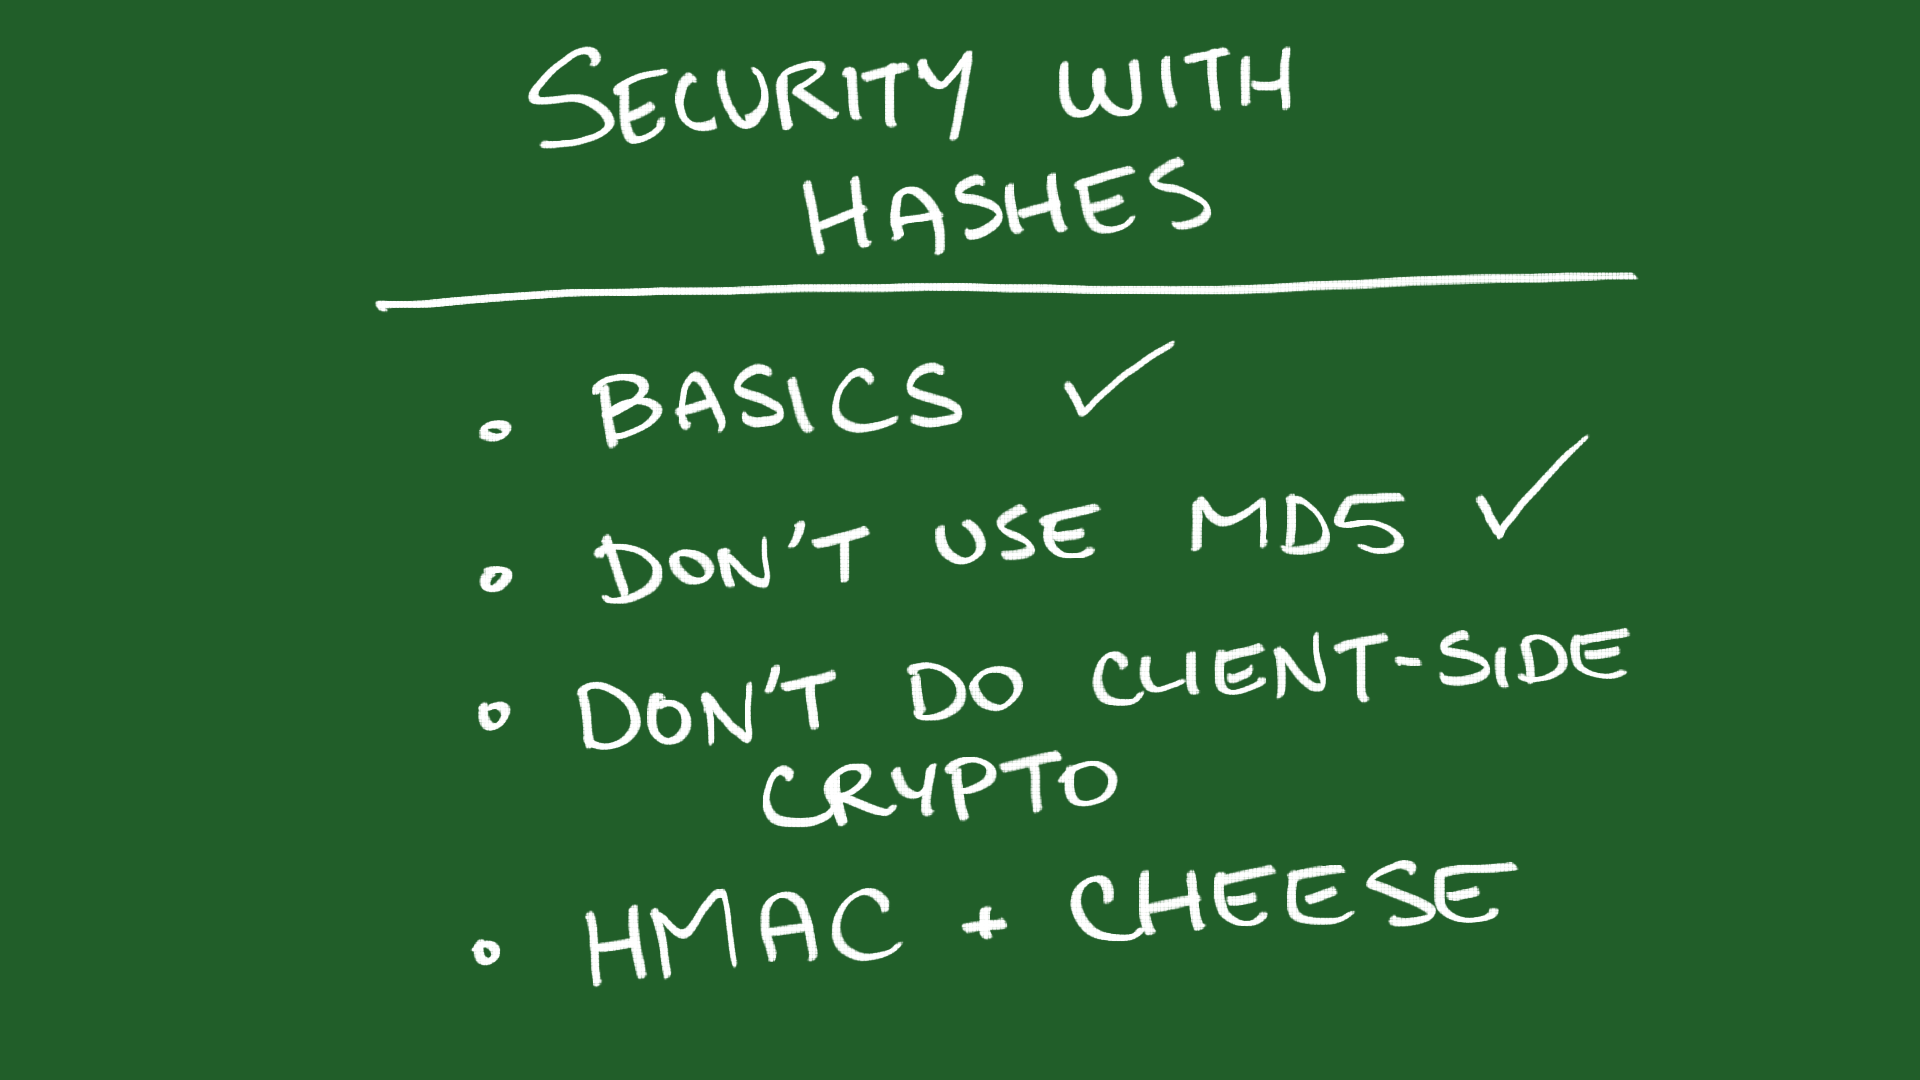 SECURITY WITH
HASHES
• BASICS ✓
• DON'T USE MD5 ✓
• DON'T DO CLIENT-SIDE
CRYPTO
• HMAC + CHEESE